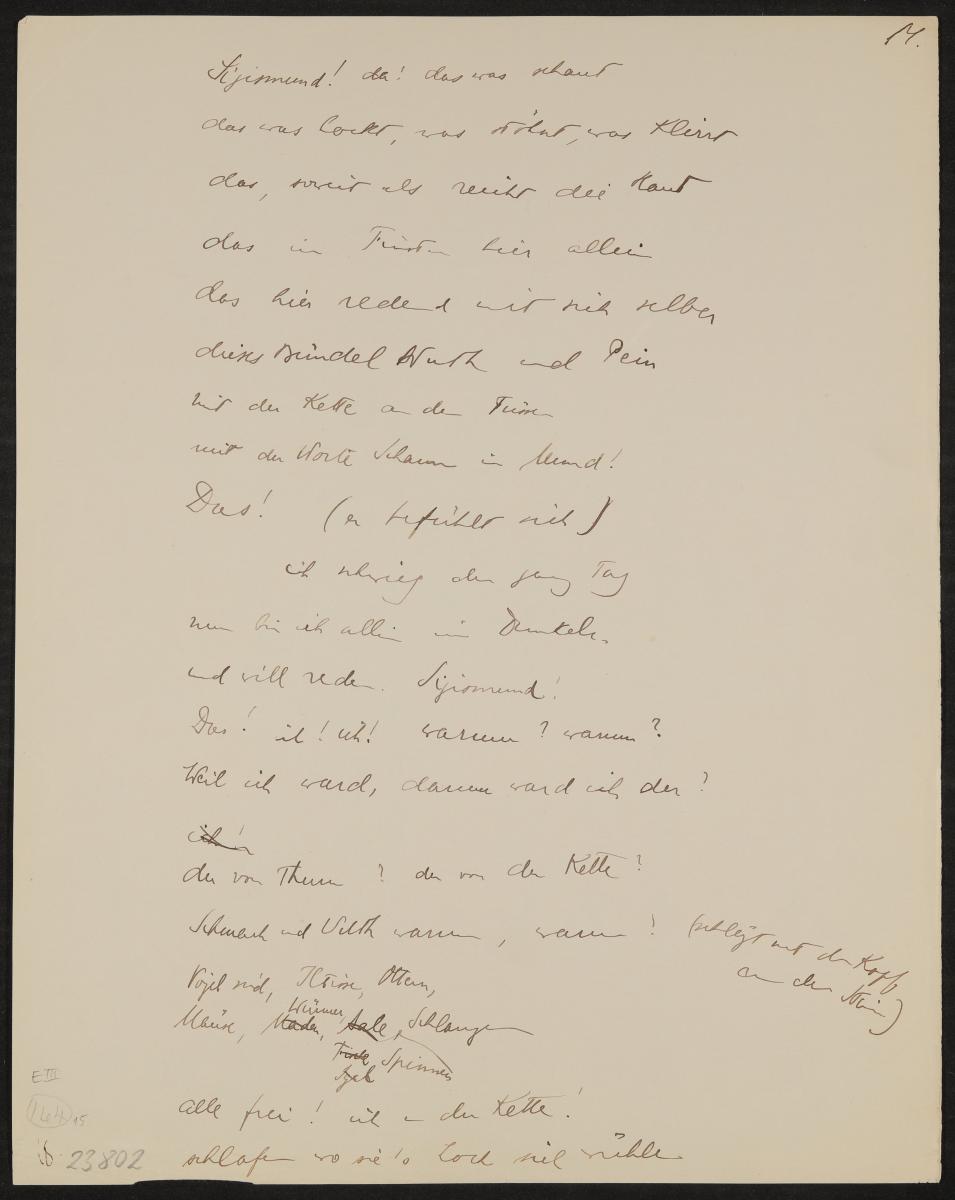 14.
Sigismund! da! das was schaut
das was hockt, was stöhnt, was klirrt
das, soweit als reicht die Haut
das im Finstern hier allein
das hier redend mit sich selber
dieses Bündel Wuth und Pein
mit der Kette an den Füssen
mit der Worte Schaum im Mund!
Das! (er befühlt sich)
ich schwieg den ganz Tag
nun bin ich allein im Dunkeln
und will reden. Sigismund!
Das! ich! ich! warum? warum?
Weil ich ward, darum ward ich der?
der vom Thurm? der von der Kette?
Schmach und Wuth warum, warum! (schlägt mit dem Kopf
an den Stein)
Vögel sind, Ottern,
Würmer,
Mäuse, Maden, Aale, Schlangen
Fische Spinnen
Igel
alle frei! ich an der Kette!
schlafen wo sie's Loch sich wühlen
E III
144 15
23802